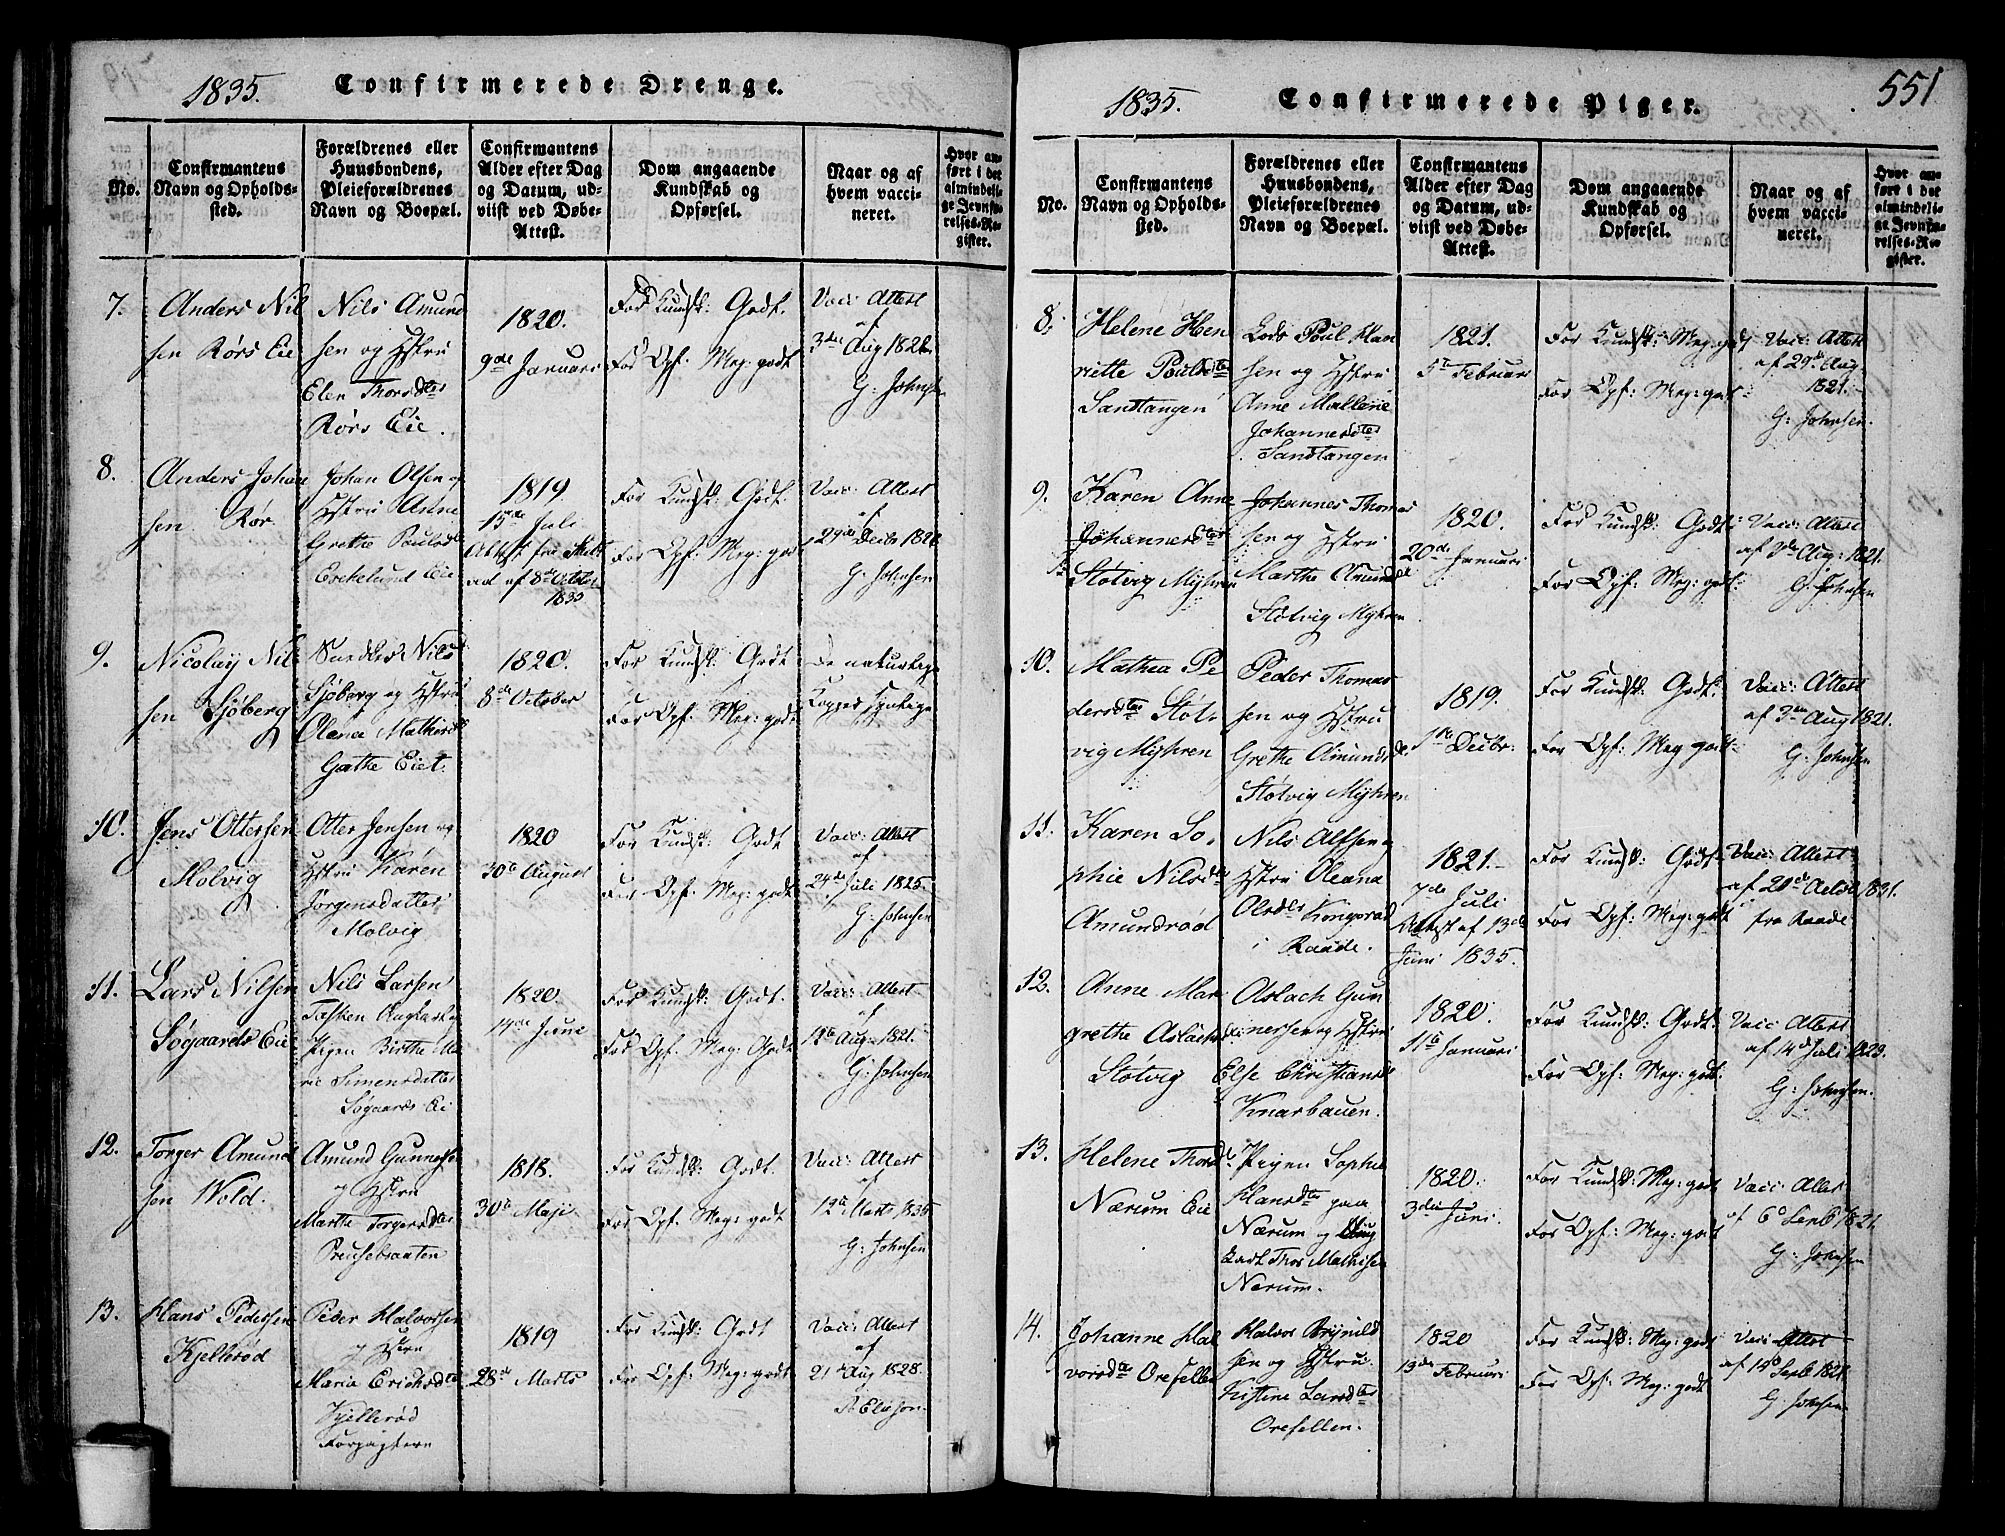 1835.
Confirmerede Drenge.
No.
Confirmantens
Navn og Opholds-
sted.
Forældrenes eller
Huusbondens,
Pleieforældrenes
Navn og Boepæl.
Confirmantens
Alder efter Dag
og Datum, ud-
viist ved Døbe-
Attest.
Dom angaaende
Kundskab og
Opførsel.
Naar og af
hvem vacci-
neret.
Hvor an-
ført i det
almindeli-
ge Jevnfø-
relses-Re-
gister.
7.
Anders Nil
sen Rørs Eie
Nils Amund
sen og Hstru
Elen Thorsdtr
Rørs Eie.
1820.
9de Januari
For Kundsk: Godt.
For Opf: Meg: godt
Vacc: Attest
af
3die Aug 1821
G: Johnsen
8.
Anders Johan
sen Rør
Johan Olsen og
Hstru Anne
Grethe Paulsd
Evekelund Eie
1819.
15de Juli
Attest fra
ad af 8de Octbr
1835
For Kundsk: Godt.
For Opf: Meg: godt
Vacc: Attest
af
29de Decbr 182
G: Johnsen
9.
Nicolay Nil
sen Sjøberg
Nils
Sjøberg og Hstru
Olena Mathisd
Gathe Eiet.
1820.
8de October
For Kundsk: Godt
For Opf: Meg: godt
De naturlige
Kopper
10.
Jens Ottersen
Molvig
Otter Jensen og
Hstru Karen
Jørgensdatter
Molvig
1820
30te August
For Kundsk: Godt
For Opf: Meg: godt
Vacc: Attest
af
Juli 1825.
G: Johnsen
11.
Lars Nilsen
Søgaards Eie
Nils Larsen
Pigen Birthe Ma
rie Simensdatter
Søgaards Eie
1820.
14de June
For Kundsk: Godt
For Opf: Meg: Godt
Vacc: Attest
af
Aug 1821.
G: Johnsen
12.
Torger Amund
sen Wold.
Amund Gunnersen
og Hstru
Marthe Torgersdtr
Preusebraaten
1818.
30te Maji
For Kundsk: Godt.
For Opf: Meg: godt
Vacc: Attest
af
12te Marts 1835
G: Johnsen
13.
Hans Pedersen
Kjellerød
Peder Halvorsen
og Hstru
Maria Ericksdtr
Kjellerød
1819
28de Marts
For Kundsk: Godt
For Opf: Meg: godt
Vacc: Attest
af
21de Aug 1828.
1835.
Confirmerede Piger.
551
No.
Confirmantens
Navn og Opholds-
sted.
Forældrenes eller
Huusbondens,
Pleieforældrenes
Navn og Boepæl.
Confirmantens
Alder efter Dag
og Datum, ud-
viist ved Døbe-
Attest.
Dom angaaende
Kundskab og
Opførsel.
Naar og af
hvem vacci-
neret.
Hvor an-
ført i det
almindeli-
ge Jevnfø-
relses-Re-
gister.
8.
Helene Hen
riette Poulsdtr
Sandtangen
Lods Poul Han
sen og Hstru
Anne Mallene
Johannesdtr
Sandtangen
1821.
5te Februar
For Kundsk: Meg: godt
For Opf: Meg: godt
Vacc: Attest
af 29de Aug
1821.
G: Johnsen.
9.
Karen Anne
Johannesdtr
Støtvig Myhren
Johannes Thomas
sen og Hstru
Marthe Amundsd
Støtvig Myhren
1820.
20de Januari
For Kundsk: Godt
For Opf: Meg: godt
Vacc: Attest
af 3die Aug: 1821.
G: Johnsen
10.
Mathea Pe
dersdtr Støt
vig Myhren
Peder Thomas
sen og Hstru
Grethe Amundsd
Støtvig Myhren
1819.
1te Decbr:
For Kundsk: Godt.
For Opf: Meg godt
Vacc: Attest
af 3die Aug 1821.
G: Johnsen
11.
Karen So
phie Nilsdtr
Amundrød
Nils Alfsen og
Hstru Oleana
Olsdtr Kongsrød
i Raade.
1821.
7de Juli
Attest af 13de
Juni 1835.
For Kundsk: Godt
For Opf: Meg: godt
Vacc: Attest
af 20de Octbr 1831.
fra Raade
12.
Anne Mar
grethe Aslachsd
Støtvig
Aslach Gun
nersen og Hstru
Else Christiansd
Knarbauen.
1820.
11te Januari
For Kundsk: Godt.
For Opf: Meg: godt.
Vacc: Attest
af 14de Juli 1829.
G: Johnsen.
13.
Helene Thorsd
Nærum Eie
Pigen Sophie
Hansdtr paa
Nærum og Ung
karl Thor Mathisen
Nærum.
1820.
3die Juni
For Kundsk: Meg: godt
For Opf: Meg: godt
Vacc: Attest
af 6te Septb 1821
G: Johnsen
14.
Johanne Hal
vorsdtr Orefellen
Halvor Brynild
sen og Hstru
Kistine Larsdtr
Orefellen.
1820
13de Februari
For Kundsk: Meg: godt
For Opf: Meg: godt
Vacc: Attest
af Septb 1821.
G: Johnsen